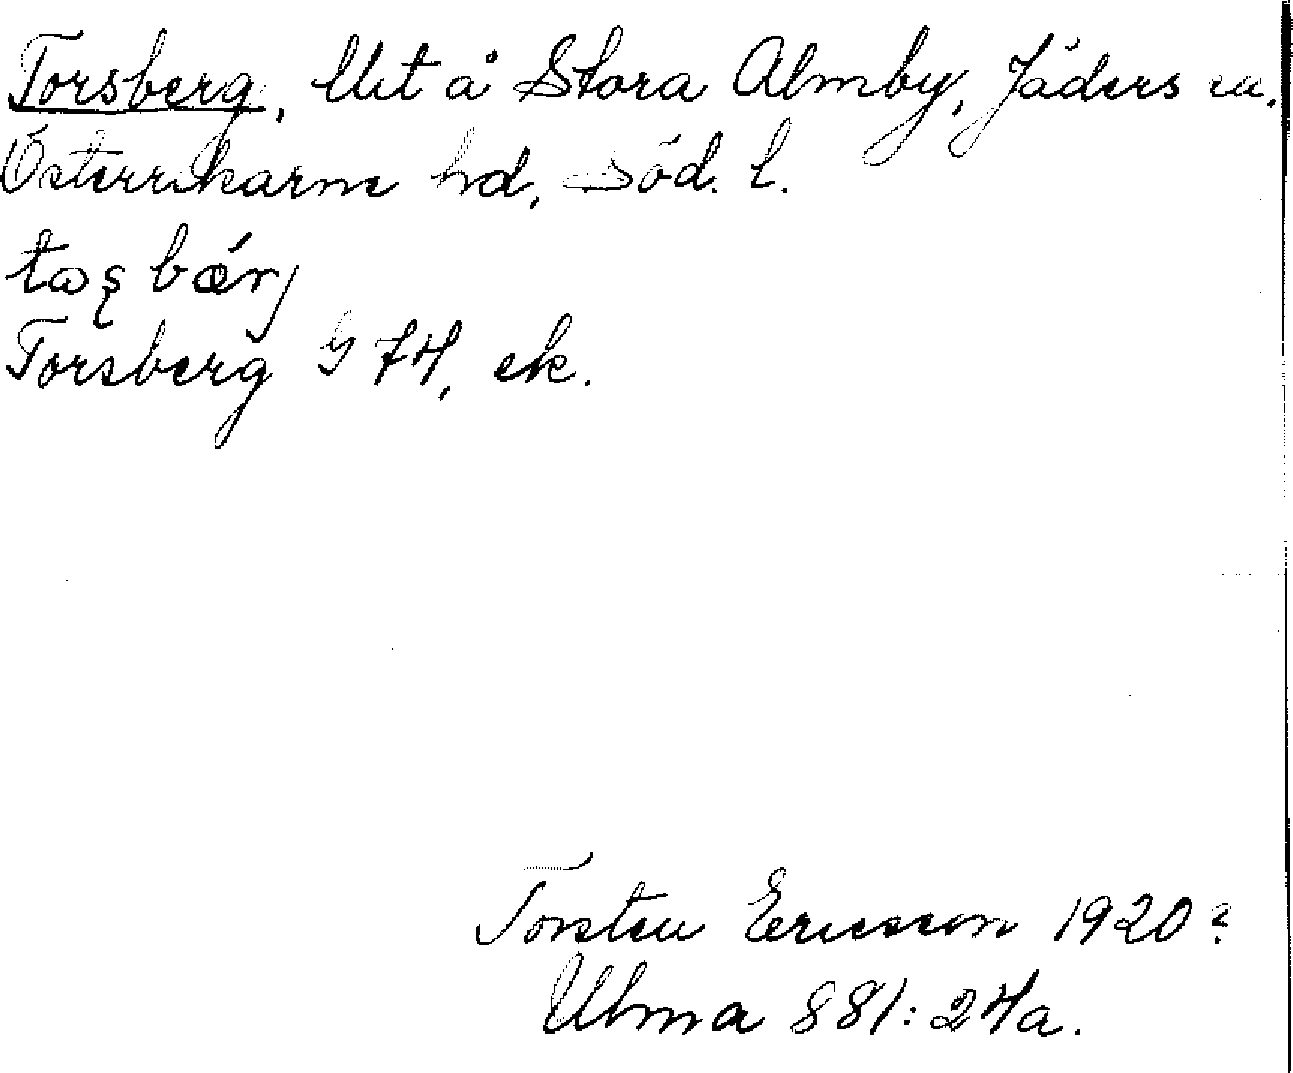 Torsberg, Utet å Stora Almby, Jäders sn.
Österrekarne hd, Söd. l.
Torsberg G 74, ek.
Torsten Ericsson 1920?
Ulma 881:24a.